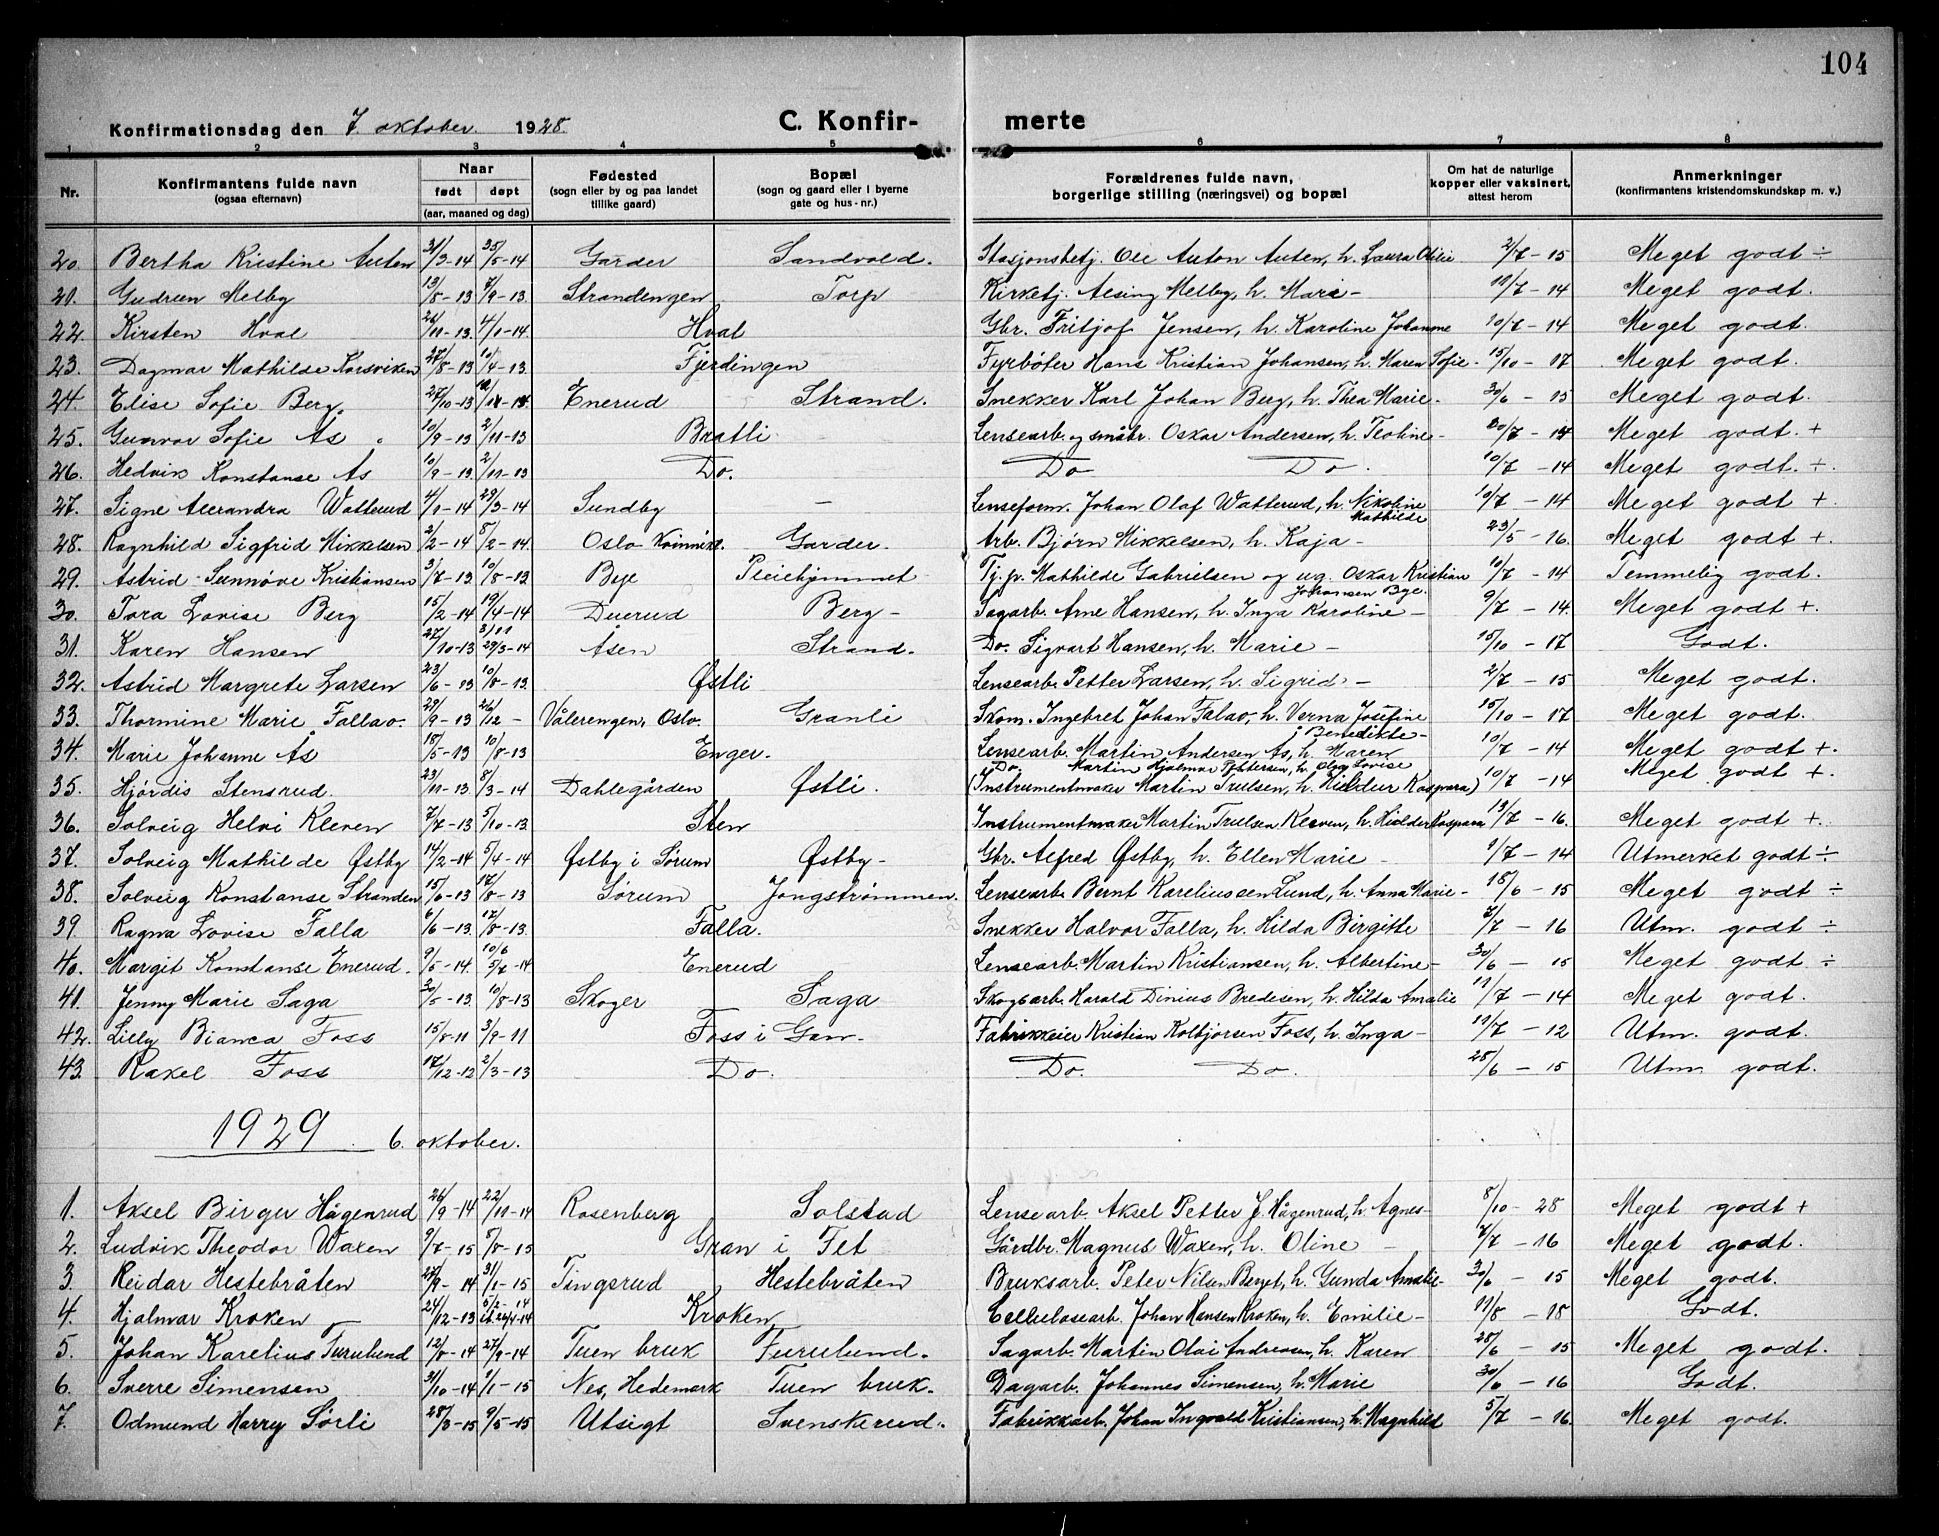 104
Konfirmationsdag den 7. oktober 1928. C. Konfir- merte
1 2 3 4 5 6 7 8
Nr. Konfirmantens fulde navn (ogsaa efternavn) Naar født døpt (aar, maaned og dag) Fødested (sogn eller by og paa landet tillike gaard) Bopæl (sogn og gaard eller i byerne gate og hus-nr.) Forældrenes fulde navn, borgerlige stilling (næringsvei) og bopæl Om hat de naturlige kopper eller vaksinert, attest herom Anmerkninger (konfirmantens kristendomskundskap m. v.)
20. Bertha Kristine Auten 31/3-14 25/5-14 Garder Sandvold. Stasjonsbetj. Ole Anton Auten, h. Laura Otilie 2/7-15 Meget godt ÷
21. Gudrun Melby 13/8-13 7/9-13. Strandengen Torp Kirketj. Alsing Melby, h. Marie- 10/7-14 Meget godt.
22. Kirsten Hval 26/11-13. 4/1-14. Hval Gbr. Fritjof Jensen, h. Karoline Johanne 10/7-14 Meget godt.
23. Dagmar Mathilde Korsviken 27/8-13 10/4-13. Fjerdingen Fyrbøter Hans Kristian Johansen, h. Maren Sofie- 15/10-17 Meget godt.
24. Elise Sofie Berg. 27/10-13 Enerud Strand. Snekker Karl Johan Berg, h. Thea Marie- 30/6-15 Meget godt.
25. Gunvor Sofie Ås 10/9-13 2/11-13 Bratli. Lensearb. og småbr. Oskar Andersen, h. Teoline- 20/7-14 Meget godt. +
26. Hedvik Konstanse Ås 10/9-13. 2/11-13 Do. Do Do. 10/7-14 Meget godt. +.
27. Signe Alexandra Watterud 4/1-14 29/3-14 Sundby - Lenseform. Johan Olaf Watterud, h. Nikoline Mathilde 10/7-14 Meget godt +
28. Ragnhild Sigfrid Mikkelsen 2/2-14 5/2-14. Oslo Kvinnekl. Garder. Arb. Bjørn Mikkelsen, h. Kaja- 23/5-16. Meget godt +.
29. Astrid Sunnøve Kristiansen 3/7-13. 10/8-13. Bye Pleiehjemmet Tj. p. Mathilde Gabrielsen og ug. Oskar Kristian Johansen Bye. 10/7-14 Temmelig godt.
30. Tora Lovise Berg 15/2-14 19/4-14 Duerud Berg- Sagarb. Arne Hansen, h. Inga Karoline- 9/7-14. Meget godt +.
31. Karen Hansen 27/10-13 29/3-14 Åsen Strand. Do. Sigvart Hansen, h. Marie- 15/10-17 Godt.
32. Astrid Margrete Larsen 23/6-13 10/8-13. Østli Lensearb. Petter Larsen, h. Sigrid- 2/7-15 Meget godt.
33. Thormine Marie Fallao. 29/9-13 26/12- Vålerengen, Oslo. Granli Skom. Ingebret Johan Falao, h. Verna Josefine Benedikte- 15/10-17 Meget godt.
34. Marie Johanne Ås 18/5-13 10/8-13 Enger. Lensearb. Martin Andersen Ås, h. Maren 10/7-14 Meget godt +.
35. Hjördis Stensrud. 23/11-13 8/3-14 Dahlegården Østli. Do. Martin Hjalmar Pettersen, h. Olga Lovise (Instrumentmaker Martin Trulsen, h. Hildur Kaspara) 10/7-14 Meget godt +.
36. Solveig Helvi Kleven 7/7-13 5/10-13. Sten Instrumentmaker Martin Trulsen Kleven, h. Hildur Kaspara 13/7-16. Meget godt +.
37. Solveig Mathilde Østby 14/2-14 5/4-14 Østby i Sørum Østby- Gbr. Alfred Østby, h. Ellen Marie- 9/7-14 Utmerket godt ÷
38. Solveig Konstanse Stranden 15/6-13 17/8-13 Sørum Jongstrømmen. Lensearb. Bernt Kareliussen Lund, h. Anna Marie- 18/6-15 Meget godt ÷
39. Ragna Lovise Falla 6/6-13. 17/8-13. Falla. Snekker Halvor Falla, h. Hilda Birgitte 2/7-16 Utm. godt ÷
40. Margit Konstanse Enerud. 9/5-14. 5/7-14 Enerud Lensearb. Martin Kristiansen, h. Albertine- 30/6-15 Meget godt ÷
41. Jenny Marie Saga 30/5-13. 10/8-13 Skoger Saga Skogsarb. Harald Dinius Bredesen, h. Hilda Amalie 11/7-14 Meget godt.
42. Lilly Bianca Foss 15/8-11 3/9-11 Foss i Gan- Fabrikkeier Kristian Kolbjørsen Foss, h. Inga- 10/7-12 Utm. godt.
43. Rakel Foss 17/12-12 2/3-13 Do. Do. Do. 25/6-15 Utm. godt.
1929. 6. oktober.
1. Aksel Birger Hågenrud 26/9-14 22/11-14 Rosenberg Solstad Lensearb. Aksel Petter J. Hågenrud, h. Agnes- 8/10-28 Meget godt +
2. Ludvik Theodor Waxen 9/7-15 8/8-15 Gran i Fet Gårdbr. Magnus Waxen, h. Oline- 7/7-16 Meget godt.
3. Reidar Hestebråten 27/9-14 31/1-15 Tingsrud Hestebråten Bruksarb. Peter Nilsen Berget, h. Gunda Amalie- 30/6-15 Meget godt.
4. Hjalmar Kroken- 24/12-13 5/2-14 26/4-14 Kroken Cellulosearb. Johan Hansen Kroken, h. Emilie- 11/8-18 Godt.
5. Johan Karelius Furulund 12/8-14 27/9-14 Tuen bruk Furulund. Sagarb. Martin Olai Andreasen, h. Karen 28/6-15 Meget godt.
6. Sverre Simensen 31/10-14 1/1-15 Nes, Hedemark Tuen bruk. Dagarb. Johannes Simensen, h. Marie 30/6-16 Godt.
7. Odmund Harry Sörli 28/3-15 9/5-15 Utsigt Svenskerud. Fabrikkarb. Johan Ingvald Kristiansen, h. Magnhild 5/7-16. Meget godt.